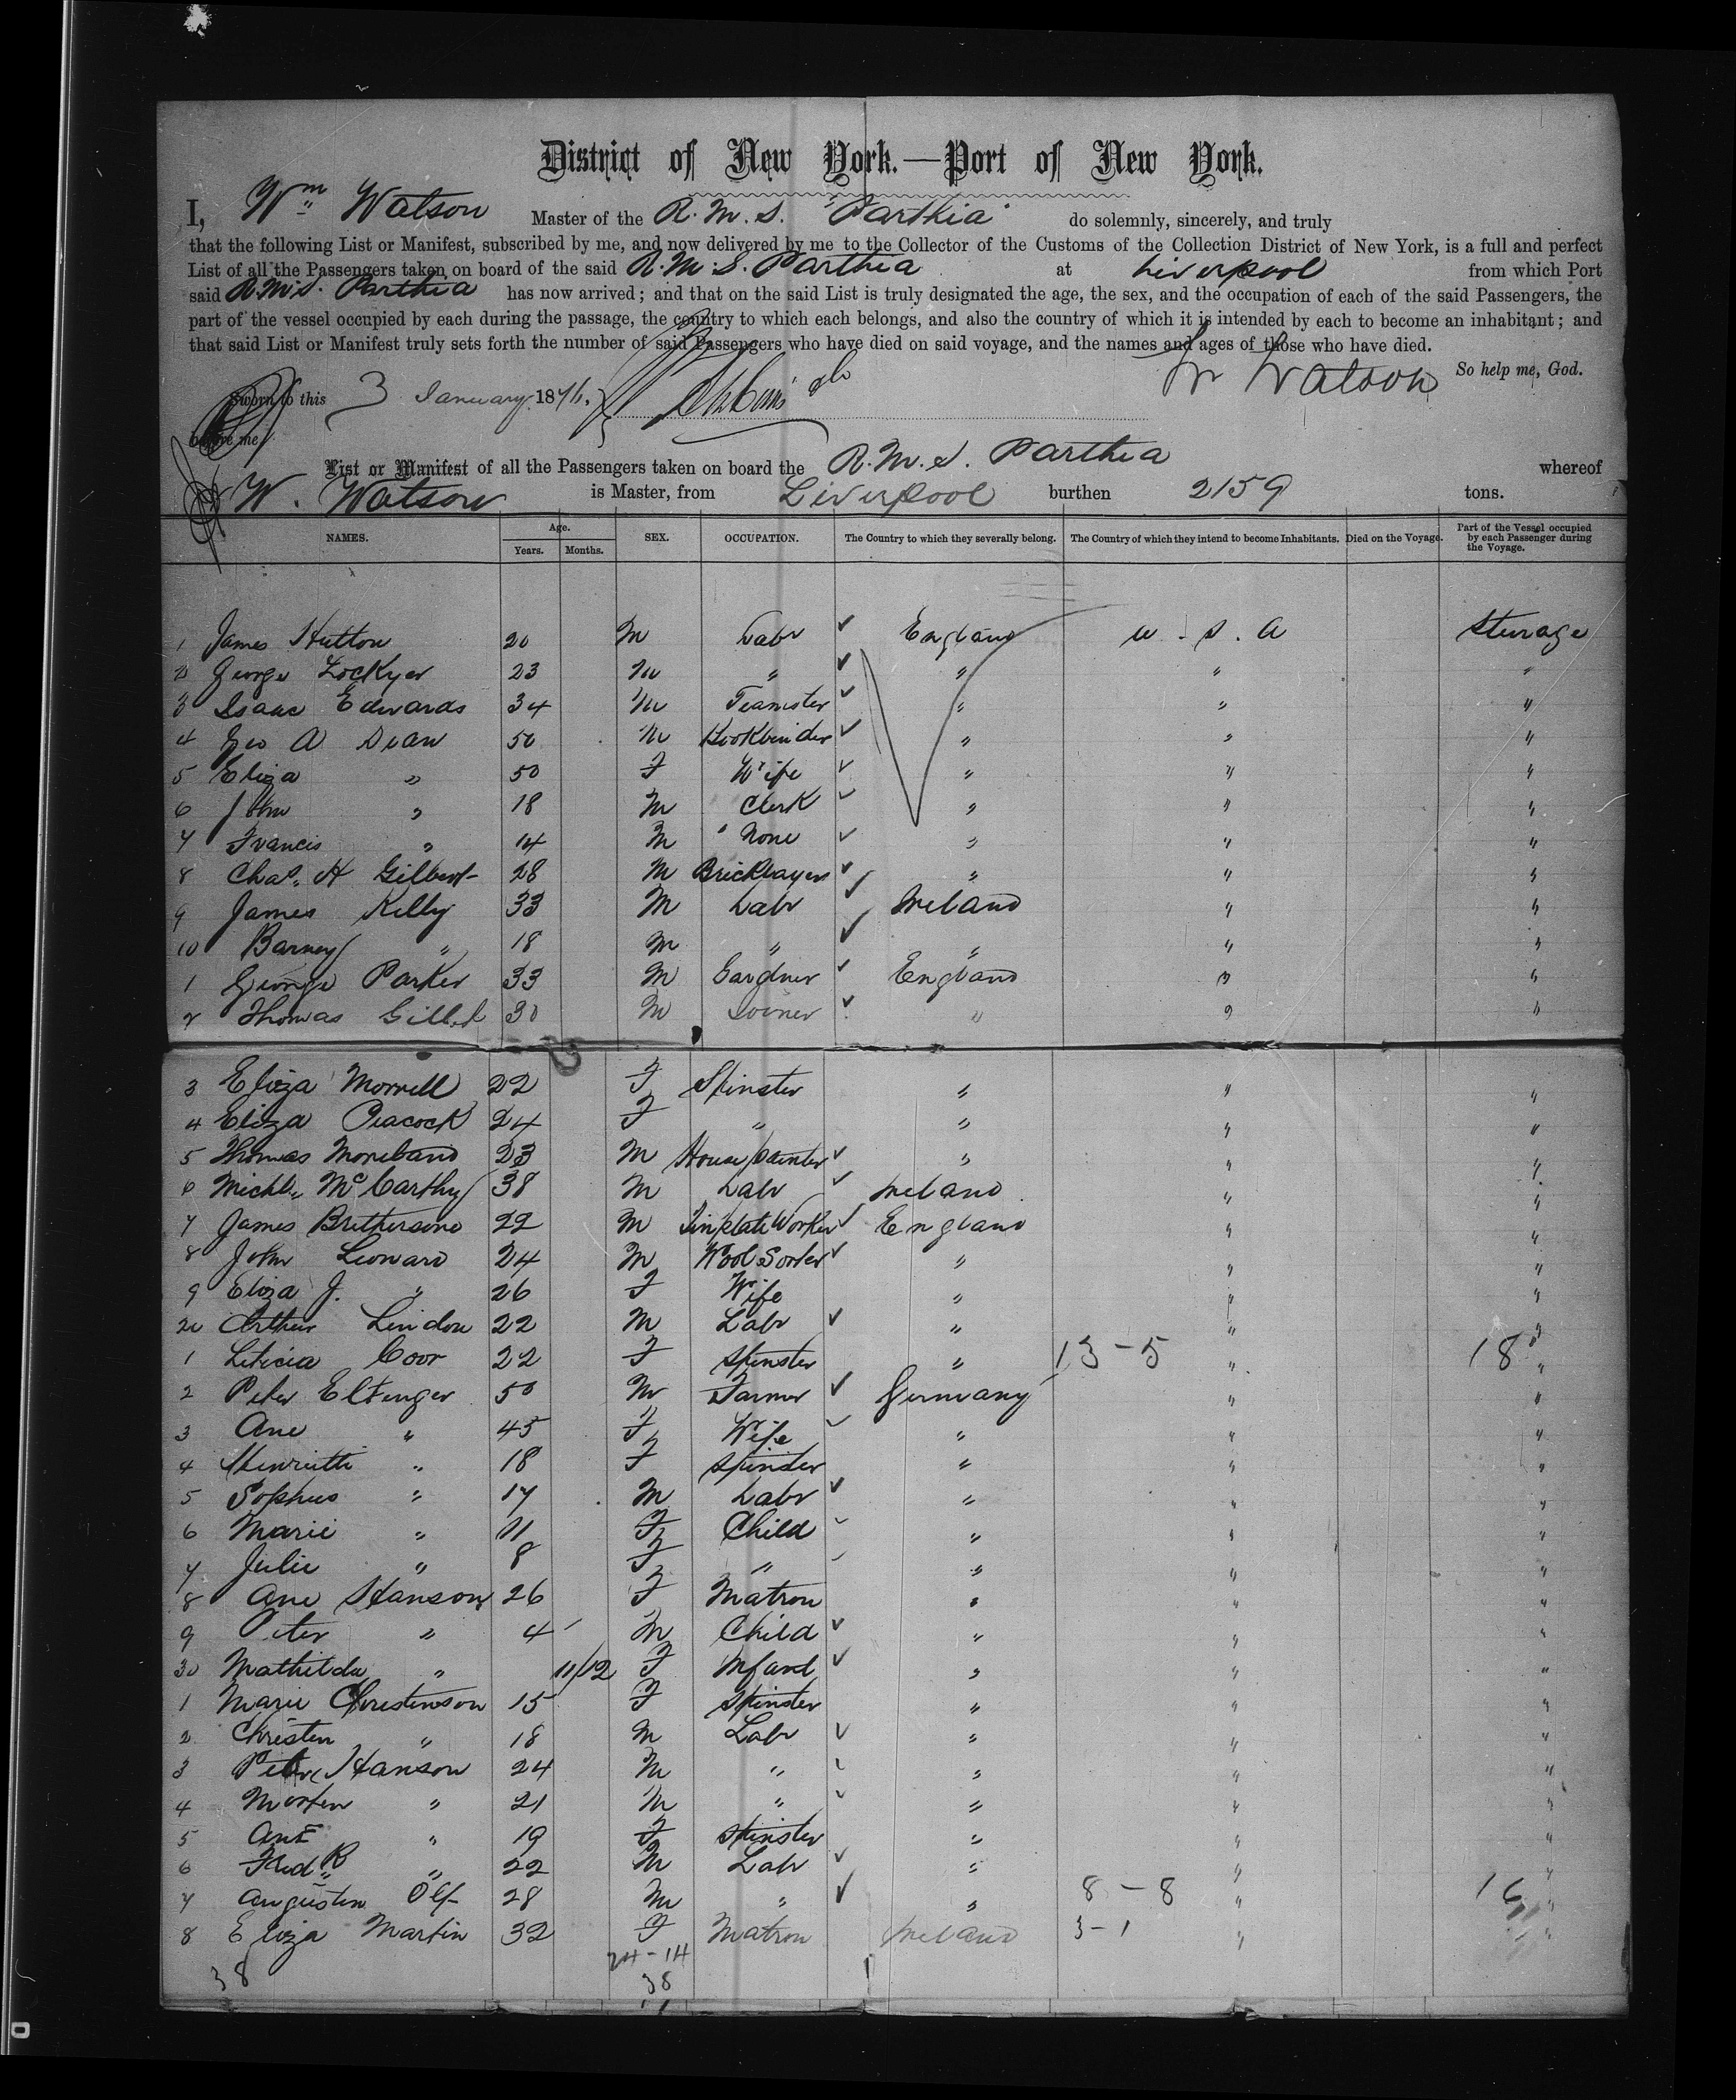 District of New York.—Port of New York.
I, Wm Watson Master of the R.M.S. "Parthia" do solemnly, sincerely, and truly
that the following List or Manifest, subscribed by me, and now delivered by me to the Collector of the Customs of the Collection District of New York, is a full and perfect
List of all the Passengers taken on board of the said R.M.S. Parthia at Liverpool from which Port
said R.M.S. Parthia has now arrived; and that on the said List is truly designated the age, the sex, and the occupation of each of the said Passengers, the
part of the vessel occupied by each during the passage, the country to which each belongs, and also the country of which it is intended by each to become an inhabitant; and
that said List or Manifest truly sets forth the number of said Passengers who have died on said voyage, and the names and ages of those who have died.
W Watson So help me, God.
Sworn to this 3 January 1876,
before me
List or Manifest of all the Passengers taken on board the R.M.S. Parthia whereof
W. Watson is Master, from Liverpool burthen 2159 tons.
NAMES. Age. Years. Months. SEX. OCCUPATION. The Country to which they severally belong. The Country of which they intend to become Inhabitants. Died on the Voyage. Part of the Vessel occupied by each Passenger during the Voyage.
1 James Hutton 20 M Labr England U.S.A Sterage
2 George Lockyer 23 M " " " "
3 Isaac Edwards 34 M Teamster " " "
4 Geo A Dean 50 M Bookbinder " " "
5 Eliza " 50 F Wife " " "
6 John " 18 M Clerk " " "
7 Francis " 14 M None " " "
8 Chas. H Gilbert 28 M Bricklayer " " "
9 James Kelly 33 M Labr Ireland " "
10 Barney " 18 M " " " "
1 George Parker 33 M Gardner England " "
2 Thomas 30 M Joiner " " "
3 Eliza Morrell 22 F Spinster " " "
4 Eliza Peacock 24 F " " " "
5 Thomas Moreland 23 M House painter " " "
6 Michl. McCarthy 38 M Labr Ireland " "
7 James 22 M Tinplate Worker England " "
8 John Leonard 24 M Wool Sorter " " "
9 Eliza J. " 26 F Wife " " "
20 Arthur Lindon 22 M Labr " " "
1 Leticia Coor 22 F Spinster " 13-5 " 18 "
2 Peter 50 M Farmer Germany " "
3 Ane " 45 F Wife " " "
4 " 18 F Spinster " " "
5 Sophus " 17 M Labr " " "
6 Marie " 11 F Child " " "
7 Julie " 8 F " " " "
8 Ane Hanson 26 F Matron " " "
9 Peter " 4 M Child " " "
30 Mathilda " 11/12 F Infant " " "
1 Marie Christenson 15 F Spinster " " "
2 Christen " 18 M Labr " " "
3 Peter Hanson 24 M " " " "
4 Morten " 21 M " " " "
5 Ane " 19 F Spinster " " "
6 Fredk " 22 M Labr " " "
7 28 M " " 8-8 " 16 "
8 Eliza Martin 32 F Matron Ireland 3-1 " "
38 24-14
38